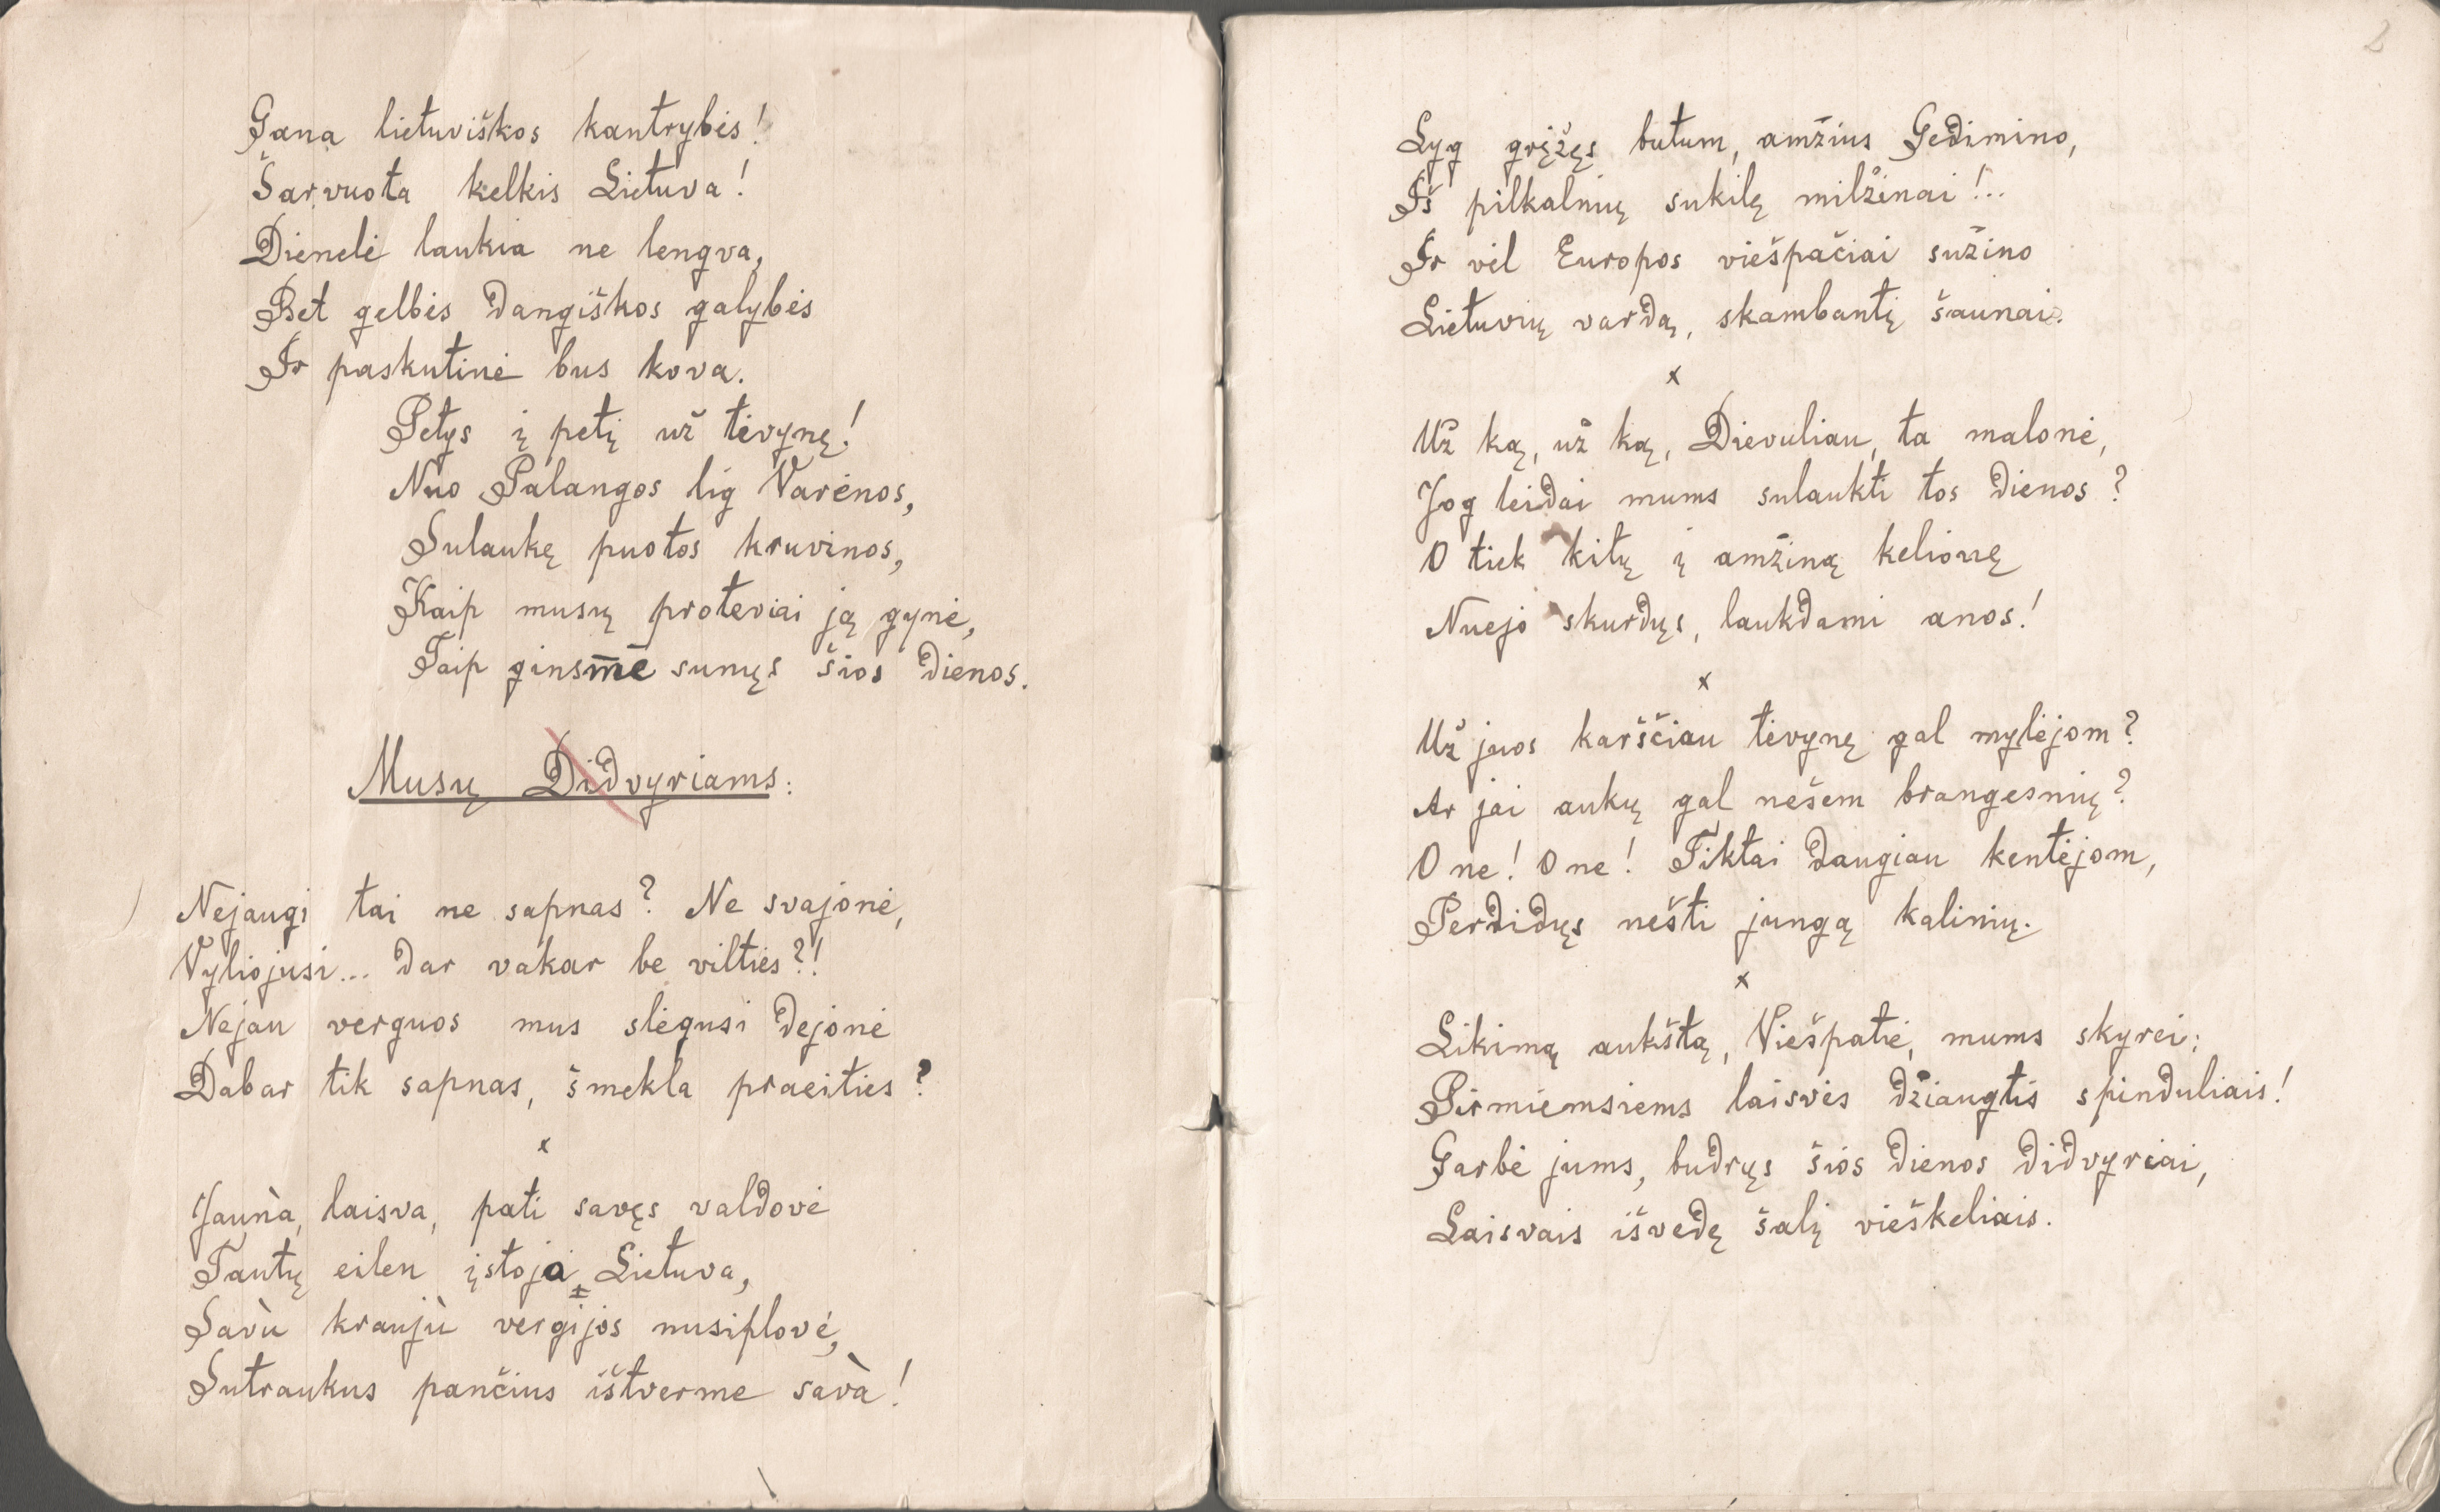 Gana lietuviškos kantrybės!
Šarvuota kelkis Lietuva!
Dienelė laukia ne lengva,
Bet gelbės dangiškos galybės
Ir paskutinė bus kova.
Petys į petį už tėvynę!
Nuo Palangos lig Varėnos,
Sulaukę puotos kruvinos,
Kaip musų protėviai ją gynė,
Taip ginsmē sunųs šios dienos.
Musų Didvyriams:
Nejaugi tai ne sapnas? Ne svajonė,
Vyliojusi... dar vakar be vilties?!
Nejau verguos mus slėgusi dejonė
Dabar tik sapnas, šmėkla praeities?
x
Jaunà, laisva, pati savęs valdovė
Tautų eilen įstoja Lietuva,
Savù kraujù vergijos nusiplovė,
Sutraukus pančius ištverme savà!
2
Lyg grįžęs butum, amžius Gedimino,
Iš pilkalnių sukilę milžinai!..
Ir vėl Europos viešpačiai sužino
Lietuvių vardą, skambantį šaunai.
x
Už ką, už ką, Dievuliau, ta malonė,
Jog leidai mums sulaukti tos dienos?
O tiek kitų į amžiną kelionę
Nuėjo skurdųs, laukdami anos!
x
Už juos karščiau tėvynę gal mylėjom?
Ar jai aukų gal nešėm brangesnių?
O ne! O ne! Tiktai daugiau kentėjom,
Perdidųs nešti jungą kalinių.
x
Likimą aukštą, Viešpatie, mums skyrei;
Pirmiemsiems laisvės džiaugtis spinduliais!
Garbė jums, budrųs šios dienos didvyriai,
Laisvais išvedę šalį vieškeliais.